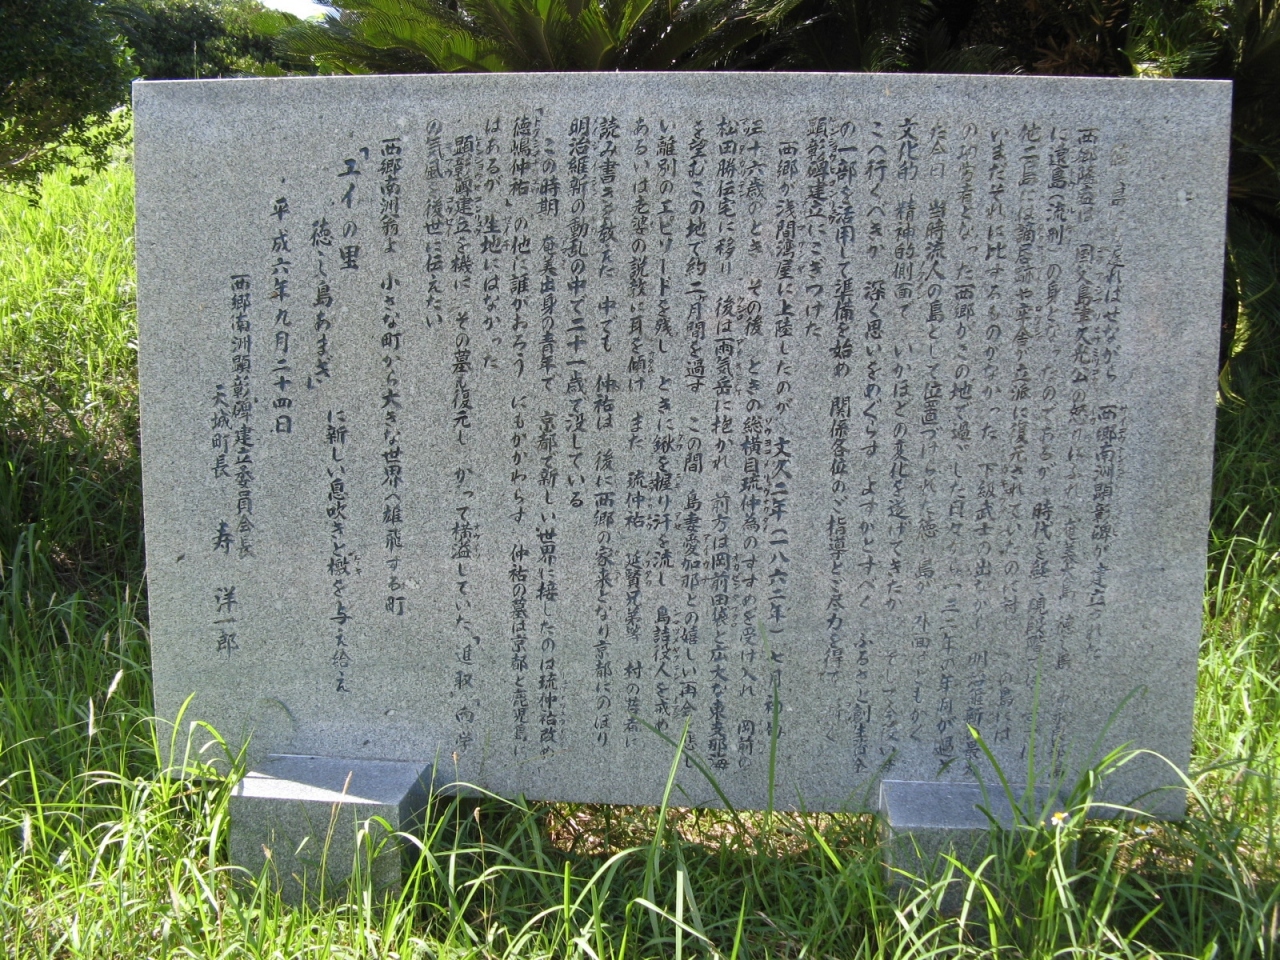 遅ればせながら 西郷南洲顕彰碑が建立された
西郷隆盛は 国父島津久光公の怒りにふれ 奄美大島 徳之島
に遠島(流刑)の身となったのであるが 時代を経
他二島には謫居跡や牢舎が立派に復元されていたのに対 この島には
いまだそれに比するものがなかった 下級武士の出ながら 明治維新
の功労者となった西郷がこの地で過ごした日々から一三二年の年月が過ぎ
た今日 当時流人の島として位置づけられた徳之島が 外面はともかく
文化的 精神的側面で いかほどの変化を遂げてきたか そしてどこ
へ行くべきか 深く思いをめぐらす よすがとすべく ふるさと創生資金
の一部を活用して準備を始め 関係各位のご指導とご尽力を得て
顕彰碑建立にこぎつけた
西郷が浅間湾屋に上陸したのが 文久二年(一八六二年)七月初旬
三十六歳のとき その後 ときの総横目琉仲為のすすめを受け入れ 岡前の
松田勝伝宅に移り 後は雨気岳に抱かれ 前方は岡前田袋と広大な東支那海
を望むこの地で約二ヶ月間を過す この間 島妻愛加那との嬉しい再会 悲し
い離別のエピソードを残し ときに鍬を握り汗を流し 島詰役人を戒め
あるいは老婆の説教に耳を傾け また 琉仲祐 延賢兄弟等 村の若者に
読み書きを教えた 中でも 仲祐は 後に西郷の家来となり京都にのぼり
明治維新の動乱の中で二十一歳で没している
この時期 奄美出身の青年で 京都で新しい世界に接したのは琉仲祐改め
「徳嶋仲祐」の他に誰がおろう にもかかわらず 仲祐の墓は京都と鹿児島に
はあるが 生地にはなかった
顕彰碑建立を機に その墓も復元し かって横溢していた「進取」「向学」
の気風を後世に伝えたい
西郷南洲翁よ 小さな町から大きな世界へ雄飛する町
「エイの里
徳之島あまぎ」に新しい息吹きと檄を与え給え
平成六年九月二十四日
西郷南洲顕彰碑建立委員会長
天城町長 寿 洋一郎